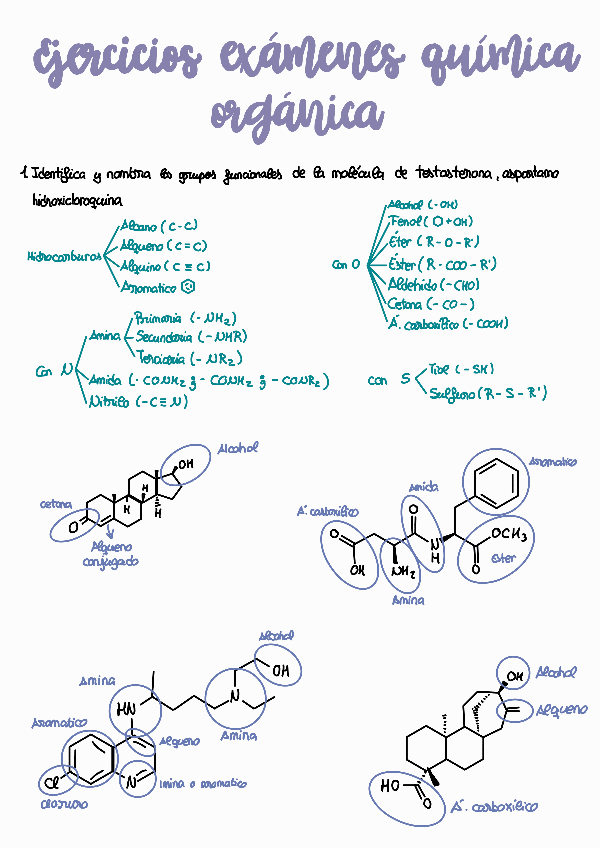 Ejercicios exámenes química
orgánica
1. Identifica y nombra los grupos funcionales de la molécula de testosterona, aspartamo
hidroxicloroquina
Hidrocarburos
Alcano (C-C)
Alqueno (C=C)
Alquino (C≡C)
Aromatico
Con O
Alcohol (-OH)
Fenol (⌬+OH)
Éter (R-O-R')
Éster (R-COO-R')
Aldehído (-CHO)
Cetona (-CO-)
Á. carboxílico (-COOH)
Con N
Amina
Primaria (-NH₂)
Secundaria (-NHR)
Terciaria (-NR₂)
Amida (-CONH₂ ; -CONH₂ ; -CONR₂)
Nitrilo (-C≡N)
con S
Tiol (-SH)
Sulfuro (R-S-R')
Alcohol
OH
cetona
O
H
H
H
H
Alqueno
conjugado
Aromatico
Amida
Á. carboxílico
O
O
OCH₃
N
H
OH
NH₂
O
Ester
Amina
Alcohol
OH
Amina
HN
N
Amina
Aromatico
Alqueno
Cl
N
imina o aromatico
Cloruro
OH
Alcohol
Alqueno
HO
O
Á. carboxílico